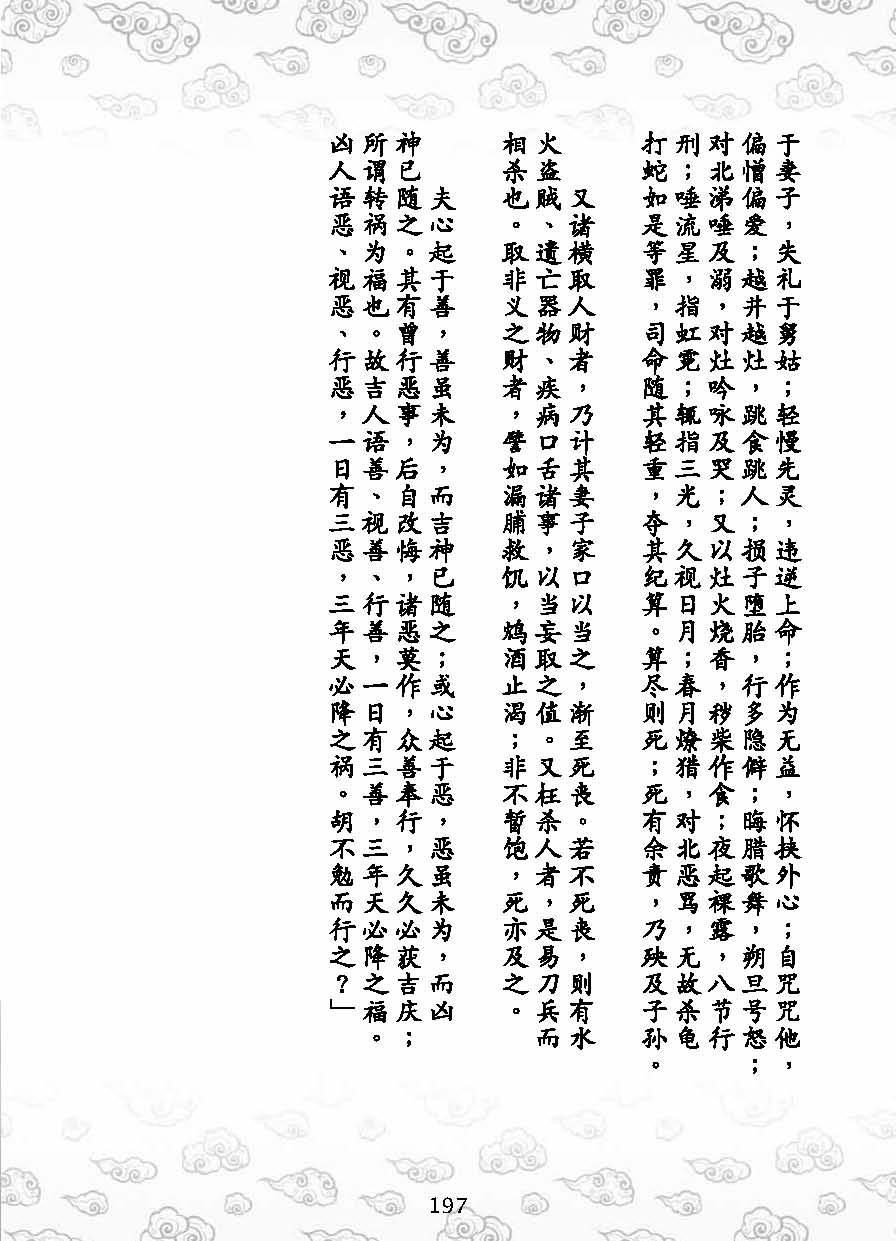 于妻子，失礼于舅姑；轻慢先灵，违逆上命；作为无益，怀挟外心；自咒咒他，
偏憎偏爱；越井越灶，跳食跳人；损子堕胎，行多隐僻；晦腊歌舞，朔旦号怒；
对北涕唾及溺，对灶吟咏及哭；又以灶火烧香，秽柴作食；夜起裸露，八节行
刑；唾流星，指虹霓；辄指三光，久视日月；春月燎猎，对北恶骂，无故杀龟
打蛇如是等罪，司命随其轻重，夺其纪算。算尽则死；死有余责，乃殃及子孙。
又诸横取人财者，乃计其妻子家口以当之，渐至死丧。若不死丧，则有水
火盗贼、遗亡器物、疾病口舌诸事，以当妄取之值。又枉杀人者，是易刀兵而
相杀也。取非义之财者，譬如漏脯救饥，鸩酒止渴；非不暂饱，死亦及之。
夫心起于善，善虽未为，而吉神已随之；或心起于恶，恶虽未为，而凶
神已随之。其有曾行恶事，后自改悔，诸恶莫作，众善奉行，久久必获吉庆；
所谓转祸为福也。故吉人语善、视善、行善，一日有三善，三年天必降之福。
凶人语恶、视恶、行恶，一日有三恶，三年天必降之祸。胡不勉而行之？」
197